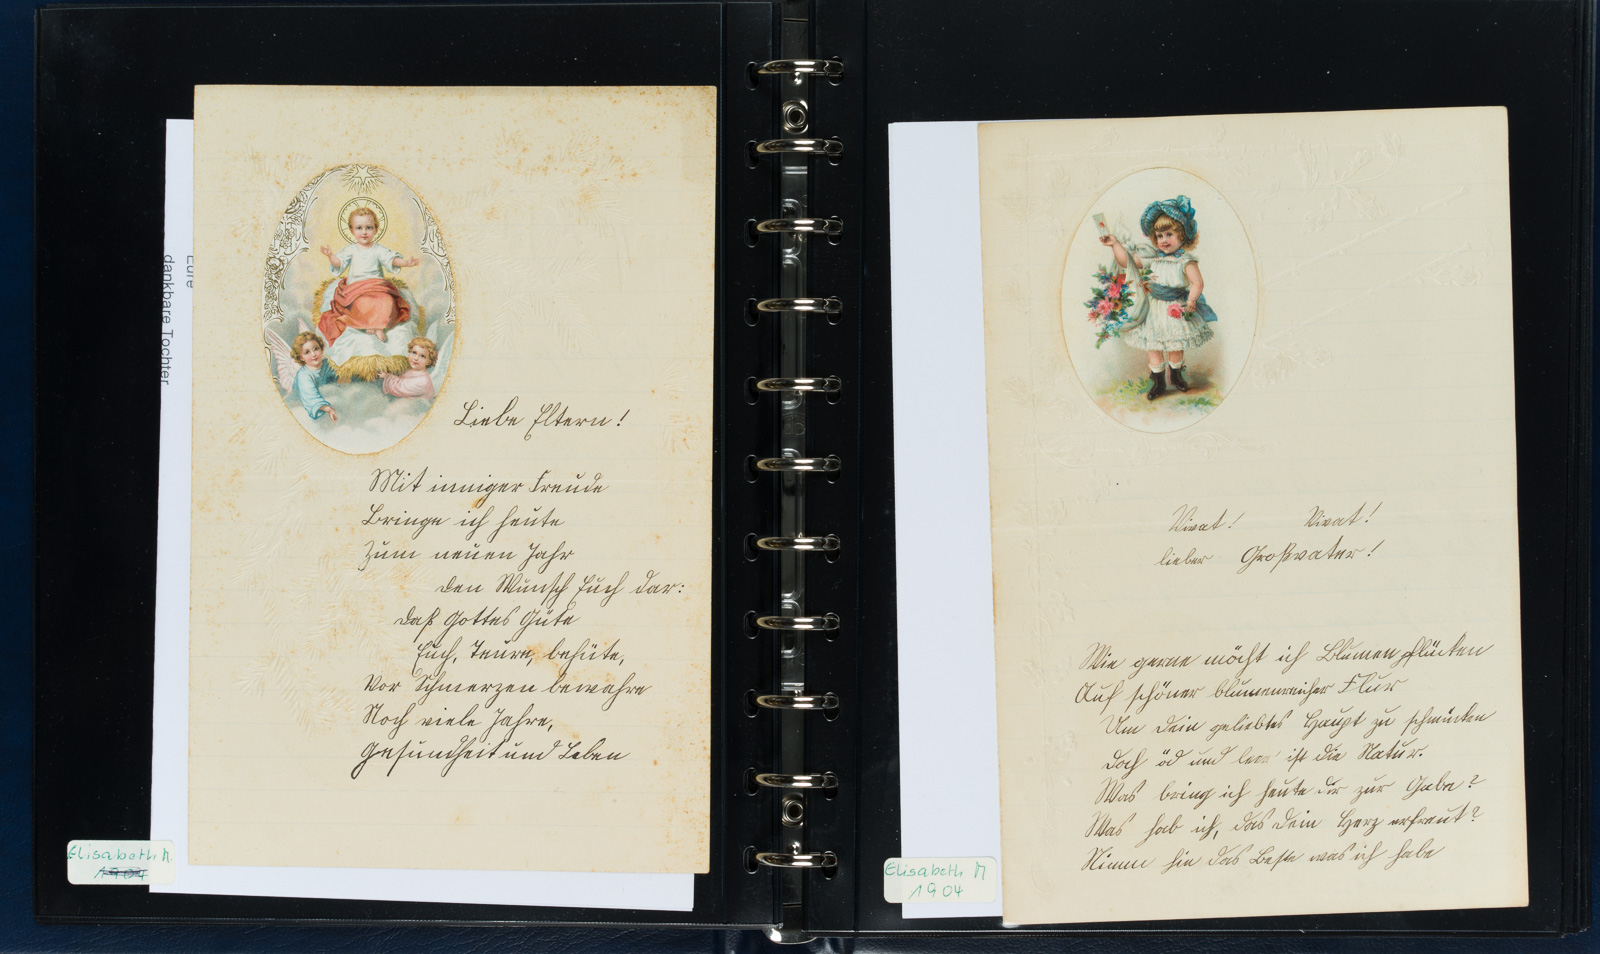 Liebe Eltern!
Mit inniger Freude
Bringe ich heute
Zum neuen Jahr
den Wunsch Euch dar:
daß Gottes Güte
Euch, Teure, behüte,
Vor Schmerzen bewahre
Noch viele Jahre,
Gesundheit und Leben
Eure
dankbare Tochter
Elisabeth M.
1904
Vivat! Vivat!
lieber Großvater!
Wie gerne möcht ich Blumen pflücken
Auf schöner blumenreicher Flur
Um dein geliebtes Haupt zu schmücken
Doch öd und leer ist die Natur.
Was bring ich heute dir zur Gabe?
Was hab ich, das dein Herz erfreut?
Nimm hin das Beste was ich habe
Elisabeth M
1904